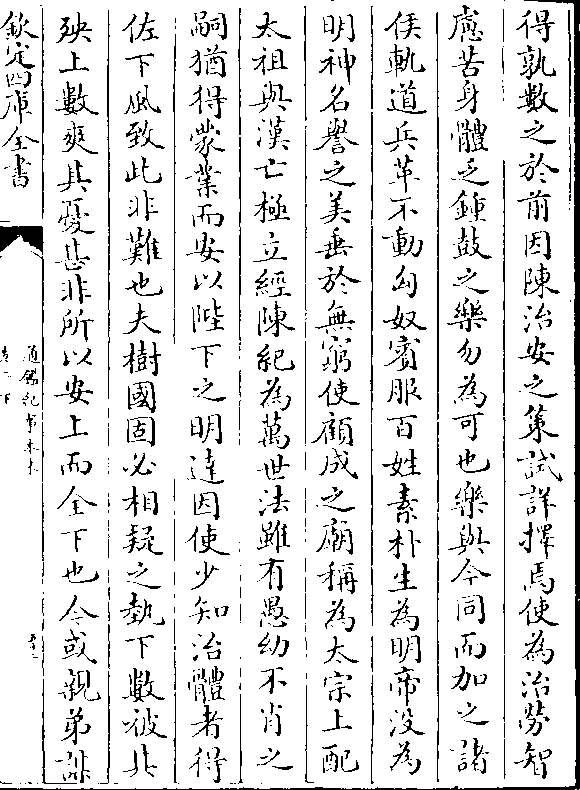 得孰數之於前因陳治安之策試詳擇焉使為治勞智
慮苦身體乏鍾鼓之樂勿為可也樂與今同而加之諸
侯軌道兵革不動匈奴賓服百姓素朴生為明帝沒為
明神名譽之美垂於無窮使顧成之廟稱為太宗上配
太祖與漢亡極立經陳紀為萬世法雖有愚幼不肖之
嗣猶得蒙業而安以陛下之明達因使少知治體者得
佐下風致此非難也夫樹國固必相疑之勢下數被其
殃上數爽其憂甚非所以安上而全下也今或親弟謀
欽定四庫全書
通鑑紀事本末